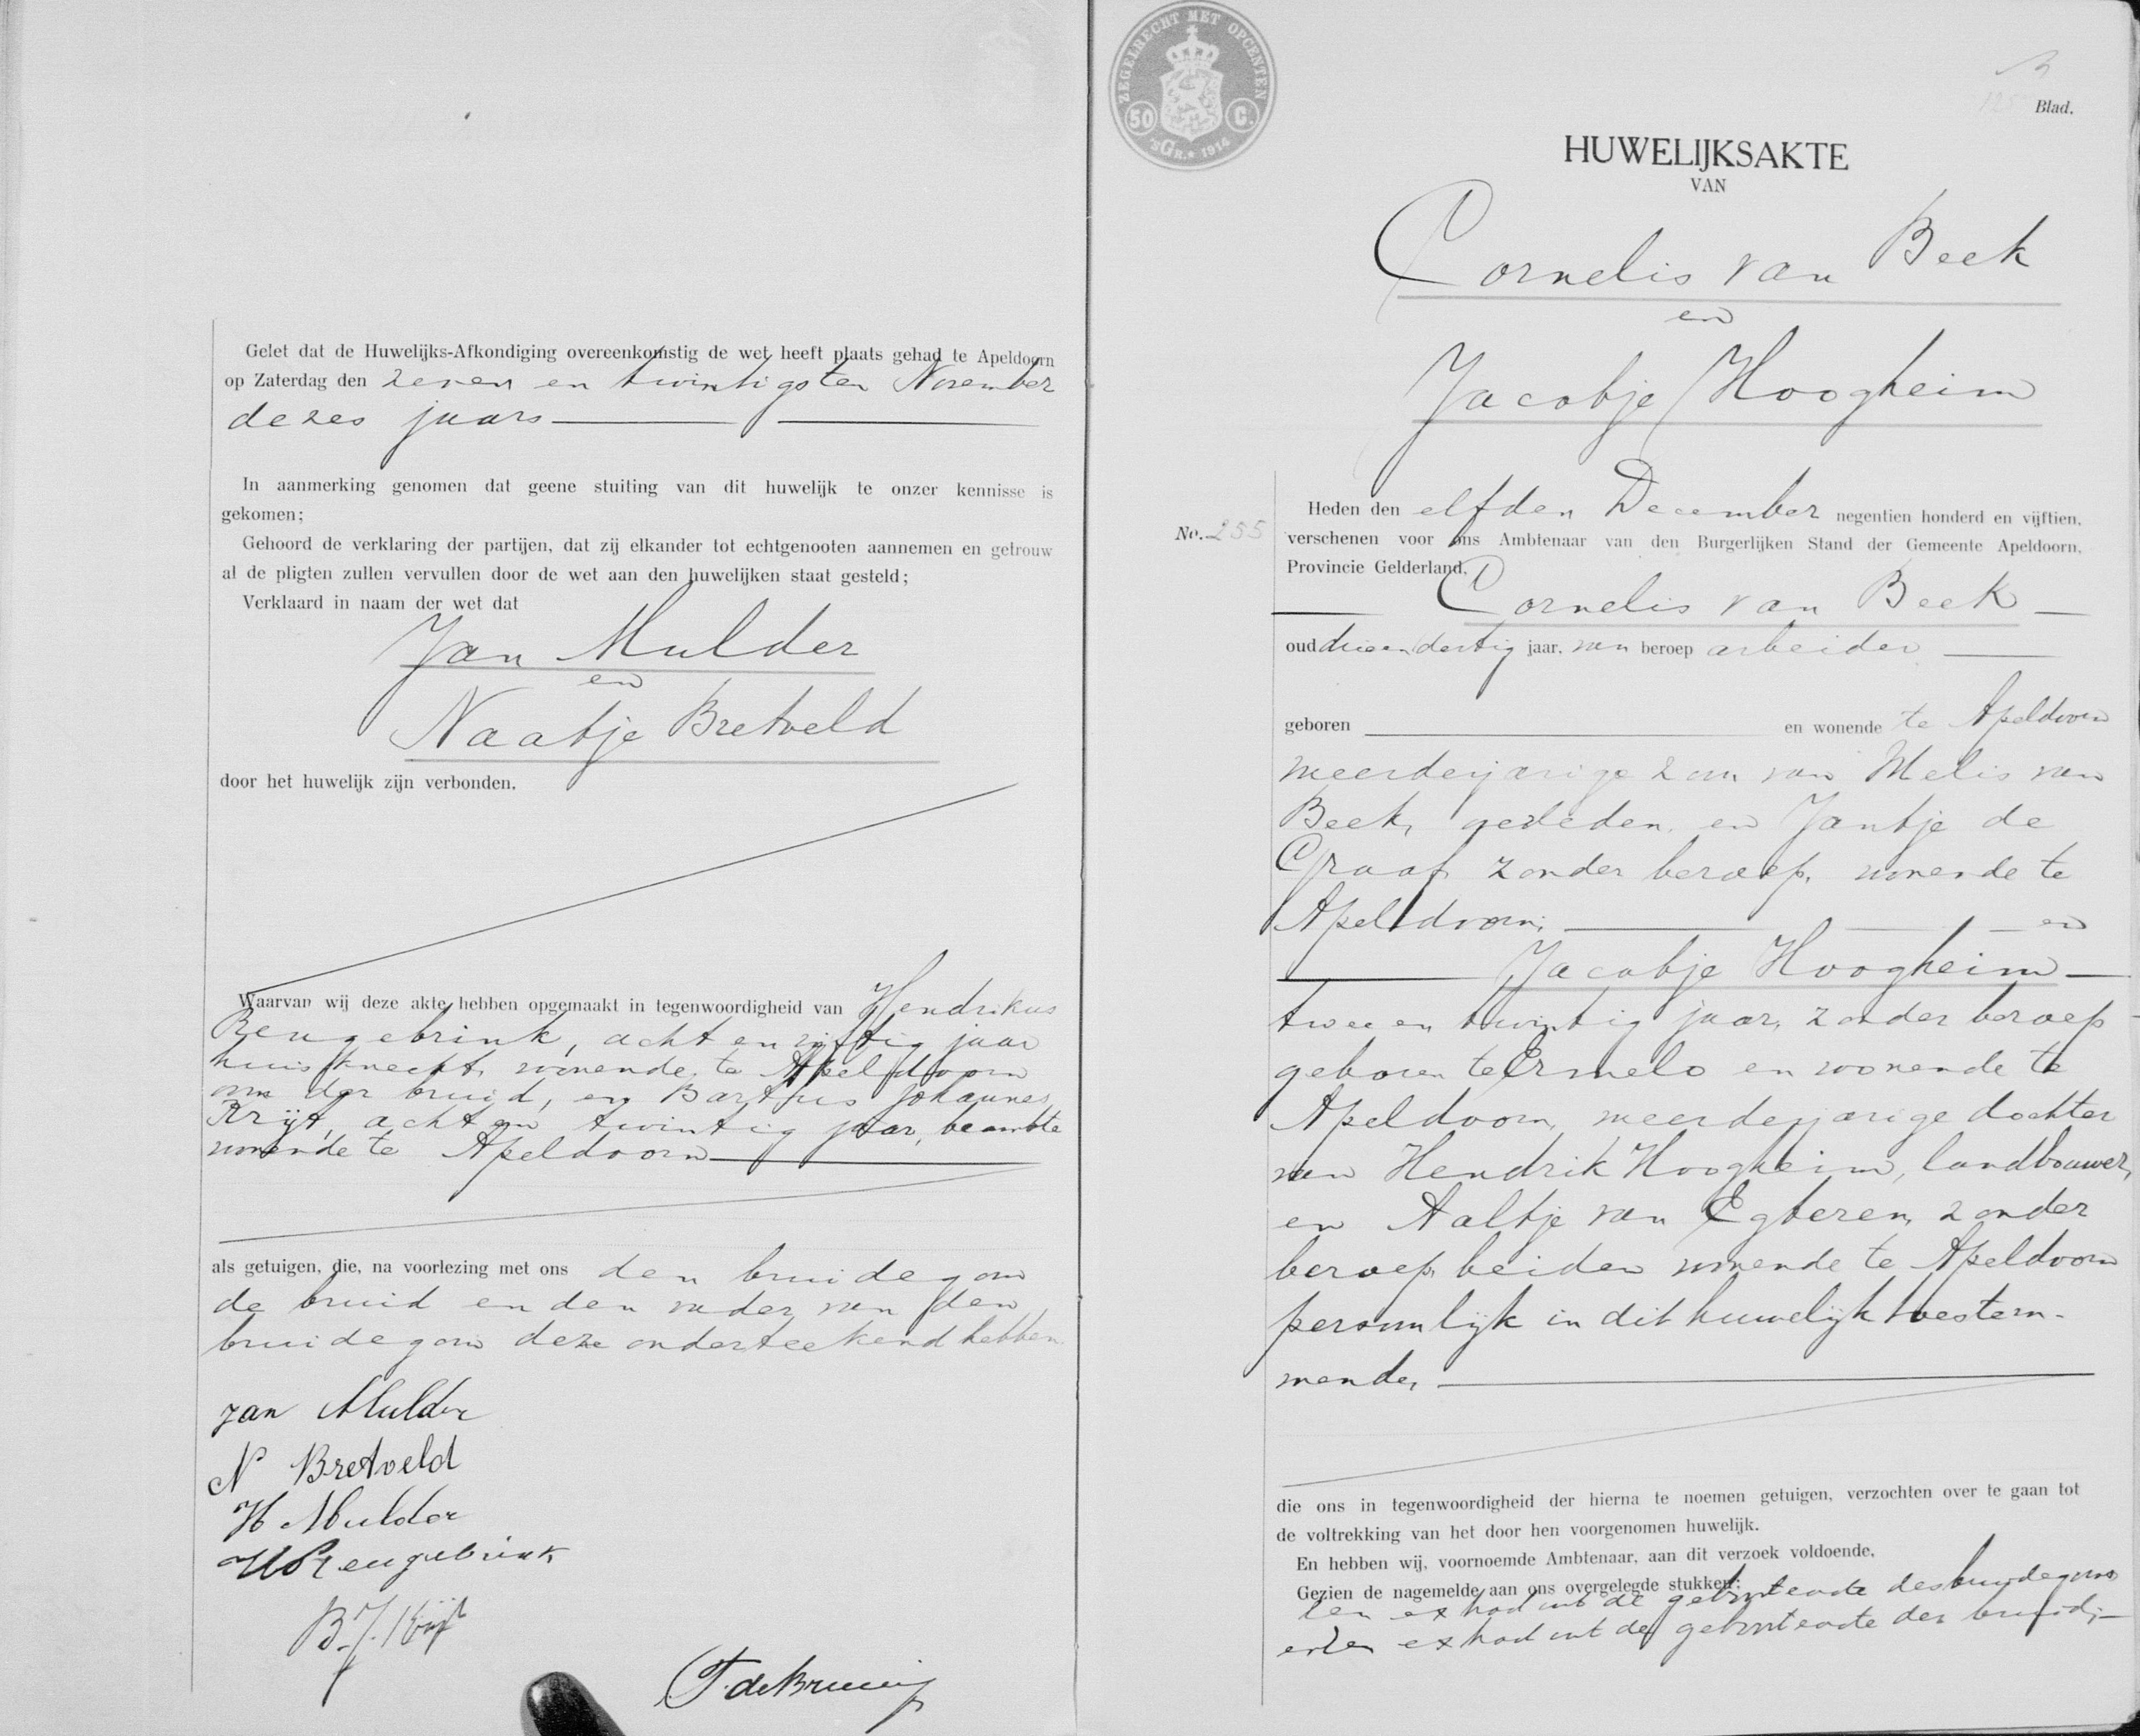 Gelet dat de Huwelijks-Afkondiging overeenkomstig de wet heeft plaats gehad te Apeldoorn
op Zaterdag den zeven en twintigsten November
dezes jaars
In aanmerking genomen dat geene stuiting van dit huwelijk te onzer kennisse is
gekomen;
Gehoord de verklaring der partijen, dat zij elkander tot echtgenooten aannemen en getrouw
al de pligten zullen vervullen door de wet aan den huwelijken staat gesteld;
Verklaard in naam der wet dat
Jan Mulder
en
Naatje Bretveld
door het huwelijk zijn verbonden.
Waarvan wij deze akte hebben opgemaakt in tegenwoordigheid van Hendrikus
Rengebrink, acht en vijftig jaar
huisknecht, wonende te Apeldoorn
oom der bruid, en Bartus Johannes
Krijt, acht en twintig jaar, beambte
wonende te Apeldoorn
als getuigen, die, na voorlezing met ons den bruidegom
de bruid en den vader van den
bruidegom deze onderteekend hebben.
Jan Mulder
N Bretveld
H Mulder
H Rengebrink
B.J. Krijt
ZEGELRECHT MET OPCENTEN
50 C.
'sGR. 1914
Blad.
HUWELIJKSAKTE
VAN
Cornelis van Beek
en
Jacobje Hoogheim
No. 255
Heden den elfden December negentien honderd en vijftien,
verschenen voor ons Ambtenaar van den Burgerlijken Stand der Gemeente Apeldoorn,
Provincie Gelderland,
Cornelis van Beek
oud drie en dertig jaar, van beroep arbeider
geboren en wonende te Apeldoorn
meerderjarige zoon van Melis van
Beek, overleden, en Jantje de
Graaf, zonder beroep, wonende te
Apeldoorn; en
Jacobje Hoogheim
twee en twintig jaar, zonder beroep
geboren te Ermelo en wonende te
Apeldoorn, meerderjarige dochter
van Hendrik Hoogheim, landbouwer,
en Aaltje van Egteren, zonder
beroep, beiden wonende te Apeldoorn
persoonlijk in dit huwelijk toestem-
mende,
die ons in tegenwoordigheid der hierna te noemen getuigen, verzochten over te gaan tot
de voltrekking van het door hen voorgenomen huwelijk.
En hebben wij, voornoemde Ambtenaar, aan dit verzoek voldoende,
Gezien de nagemelde aan ons overgelegde stukken:
een extract uit de geboorteacte des bruidegoms
en een extract uit de geboorteacte der bruid;